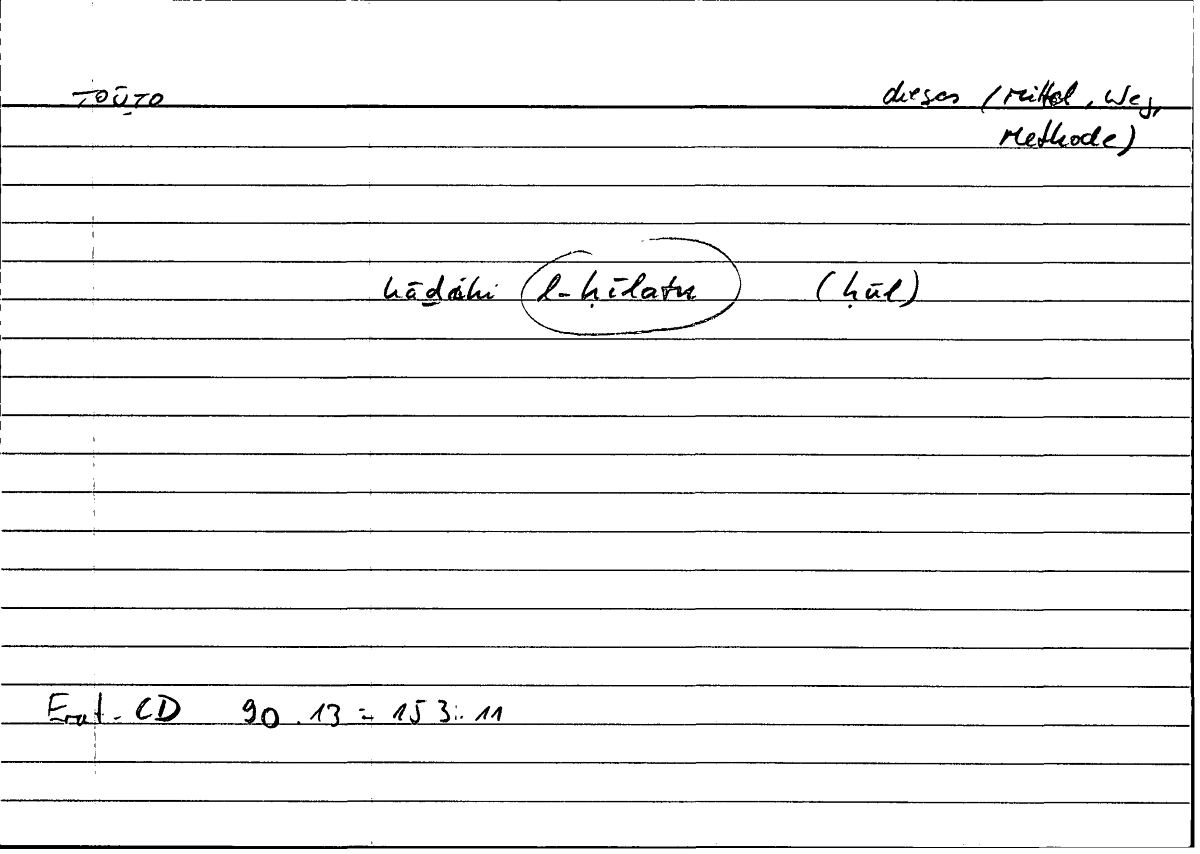 τοῦτο dieses (Mittel, Weg,
Methode)
hāḏihi l-ḥīlatu (ḥūl)
Erat. CD 90.13 = 153.11